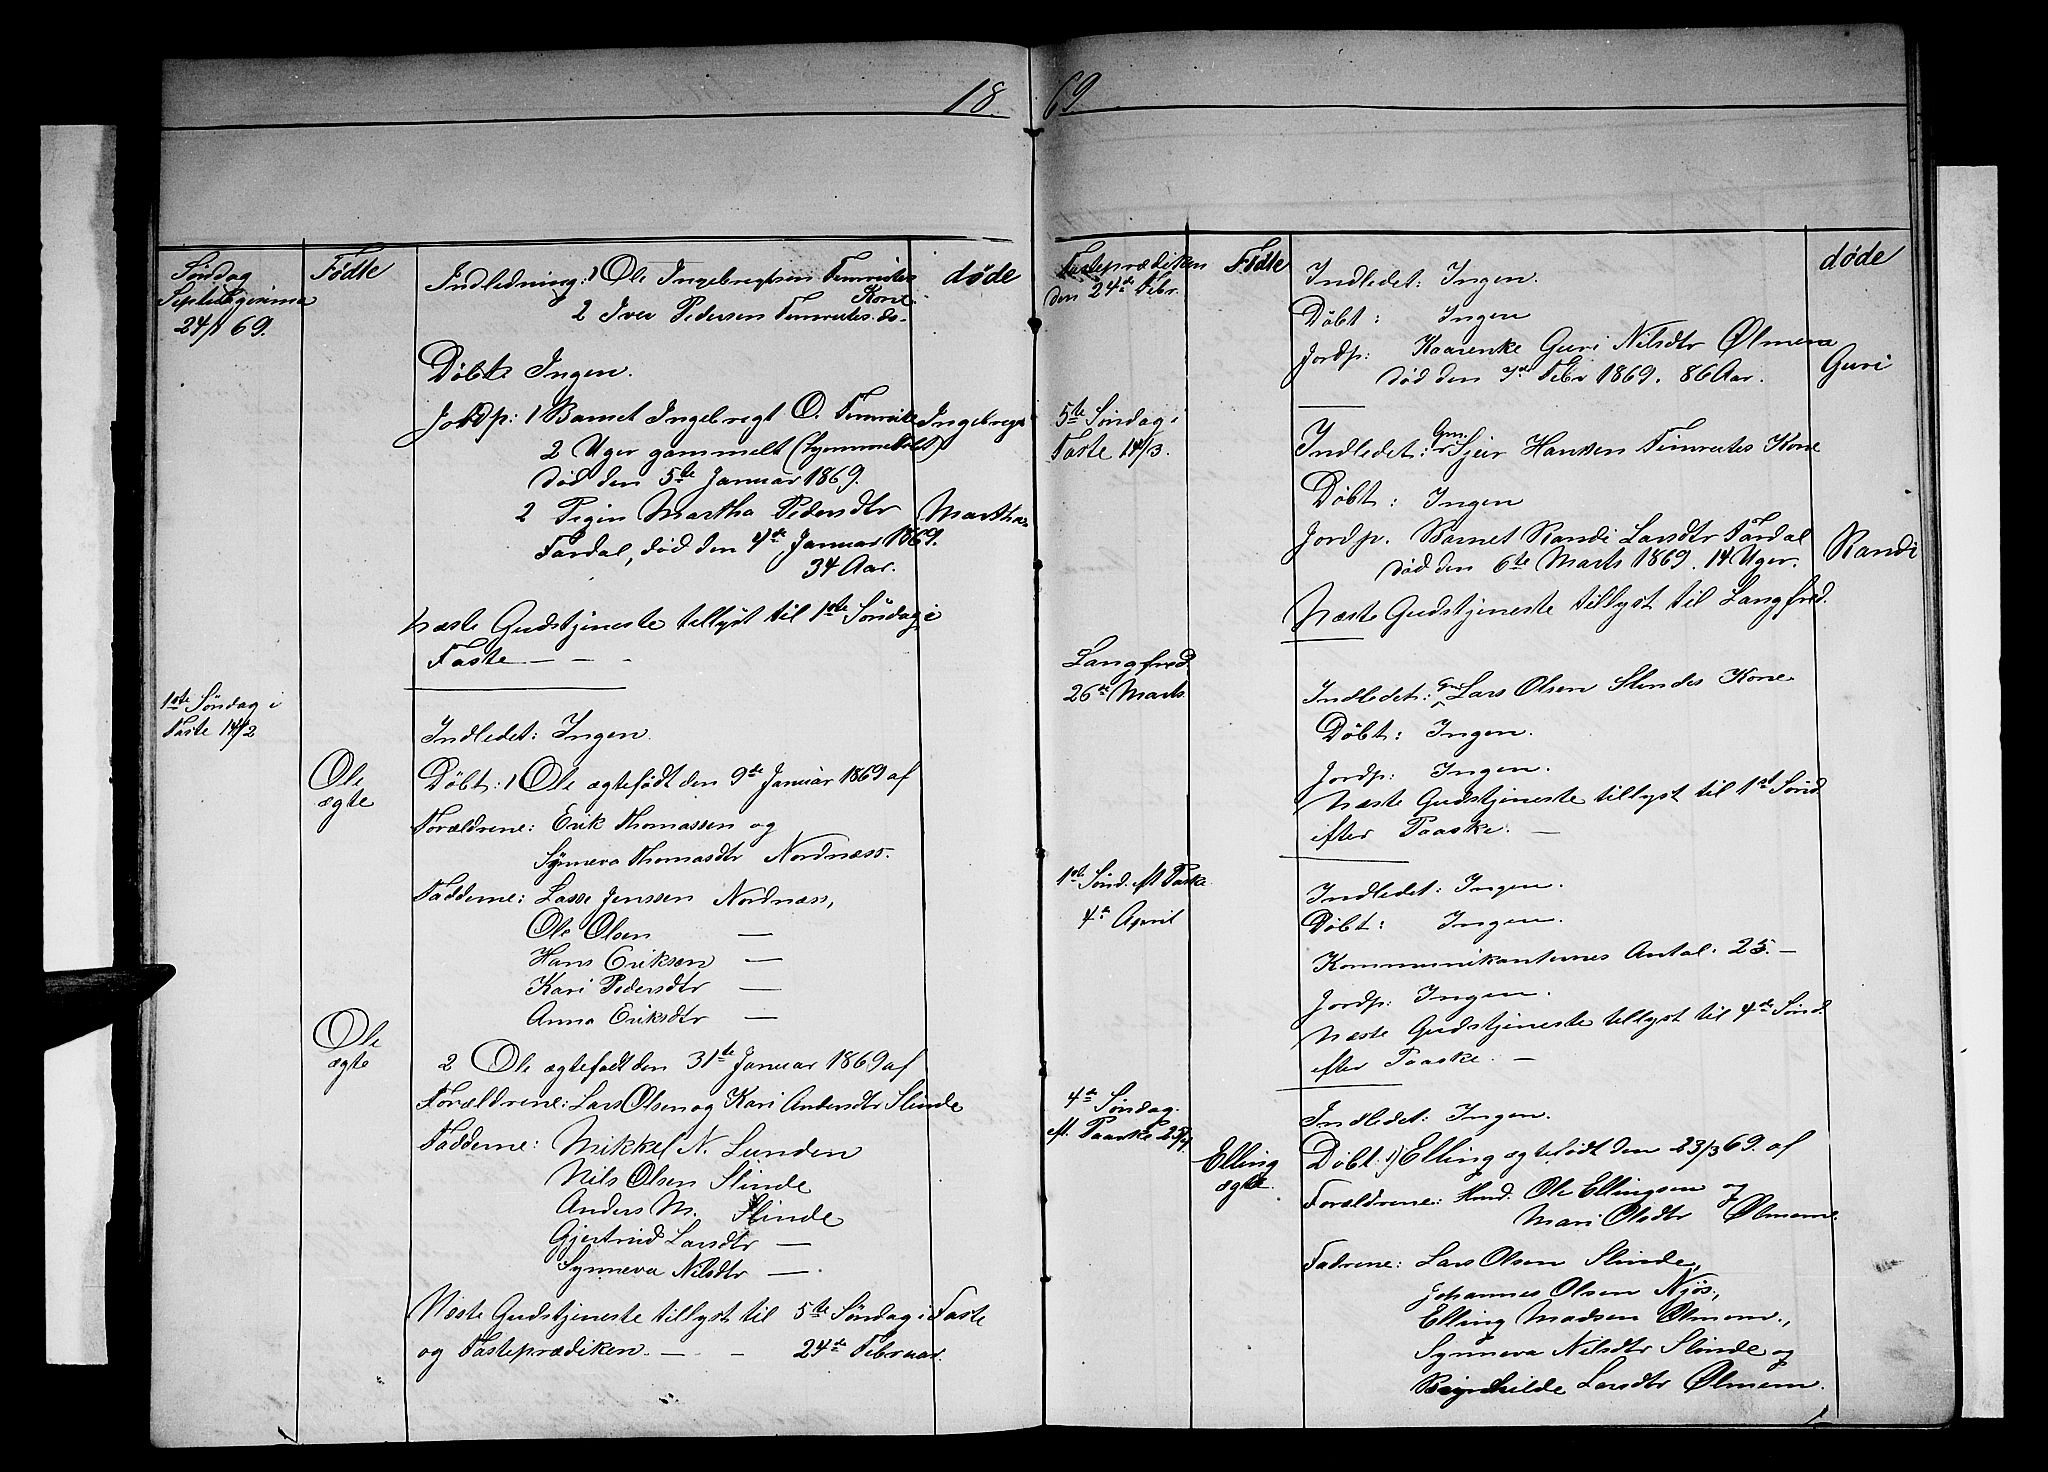 18 69
Søndag
Septuagesima
24/1 69.
Fødte
Indledning: 1 Ole Ingebregtsen Fimreites
Kone
2 Iver Pedersen Fimreites do-
døde
Døbte Ingen.
Jordp: 1 Barnet Ingebregt O. Fimreite
Ingebregt
2 Uger gammelt (hjemmedøbt)
død den 5te Januar 1869.
2 Pigen Martha Pedersdtr
Martha
Fardal, død den 4de Januar 1869.
34 Aar.
Næste Gudstjeneste tillyst til 1ste Søndag i
Faste — — -
1ste Søndag i
Faste 14/2
Indledet: Ingen.
Ole
ægte
Døbt: 1 Ole ægtefødt den 9de Januar 1869 af
Forældrene: Erik Thomassen og
Synneva Thomasdtr Nordnæss.
Fadderne: Lasse Jenssen Nordnæss,
Ole Olsen —
Hans Eriksen —
Kari Pedersdtr —
Anna Eriksdtr —
Ole
ægte
2 Ole ægtefødt den 31te Januar 1869 af
Forældrene: Lars Olsen og Kari Andersdtr Slinde
Fadderne: Mikkel N. Lunden
Nils Olsen Slinde
Anders M. Slinde
Gjertrud Larsdtr —
Synneva Nilsdtr —.
Næste Gudstjeneste tillyst til 5te Søndag i Faste
og Fasteprædiken. — - 24de Februar.
Fasteprædiken
den 24de Febr.
Fødte
Indledet: Ingen.
døde
Døbt: Ingen
Jordp: Kaarenke Guri Nilsdtr Ølmem
død den 7de Febr 1869. 86 Aar.
Guri
5te Søndag i
Faste 14/3.
Indledet: Gm. Sjur Hansen Fimreites Kone
Døbt: Ingen
Jordp. Barnet Randi Larsdtr Fardal
død den 6te Marts 1869. 14 Uger.
Randi
Næste Gudstjeneste tillyst til Langfred.
Langfred.
26de Marts
Indledet: Gm Lars Olsen Slindes Kone
Døbt: Ingen.
Jordp: Ingen.
Næste Gudstjeneste tillyst til 1ste Sønd
efter Paaske. —
1ste Sønd. eft Paske
4de April
Indledet: Ingen.
Døbt: Ingen.
Kommunikanternes Antal: 25. —
Jordp: Ingen.
Næste Gudstjeneste tillyst til 4de Sønd.
efter Paaske. —
4de Søndag.
eft. Paaske 25/4
Indledet: Ingen.
Elling
ægte.
Døbt: 1) Elling ægtefødt den 23/3 69. af
Forældrene: Hmd. Ole Ellingsen og
Mari Olsdtr Ølmem.
Fadrene: Lars Olsen Slinde,
Johannes Olsen Njøs,
Elling Madsen Ølmem.,
Synneva Nilsdtr Slinde og
Larsdtr Ølmem.